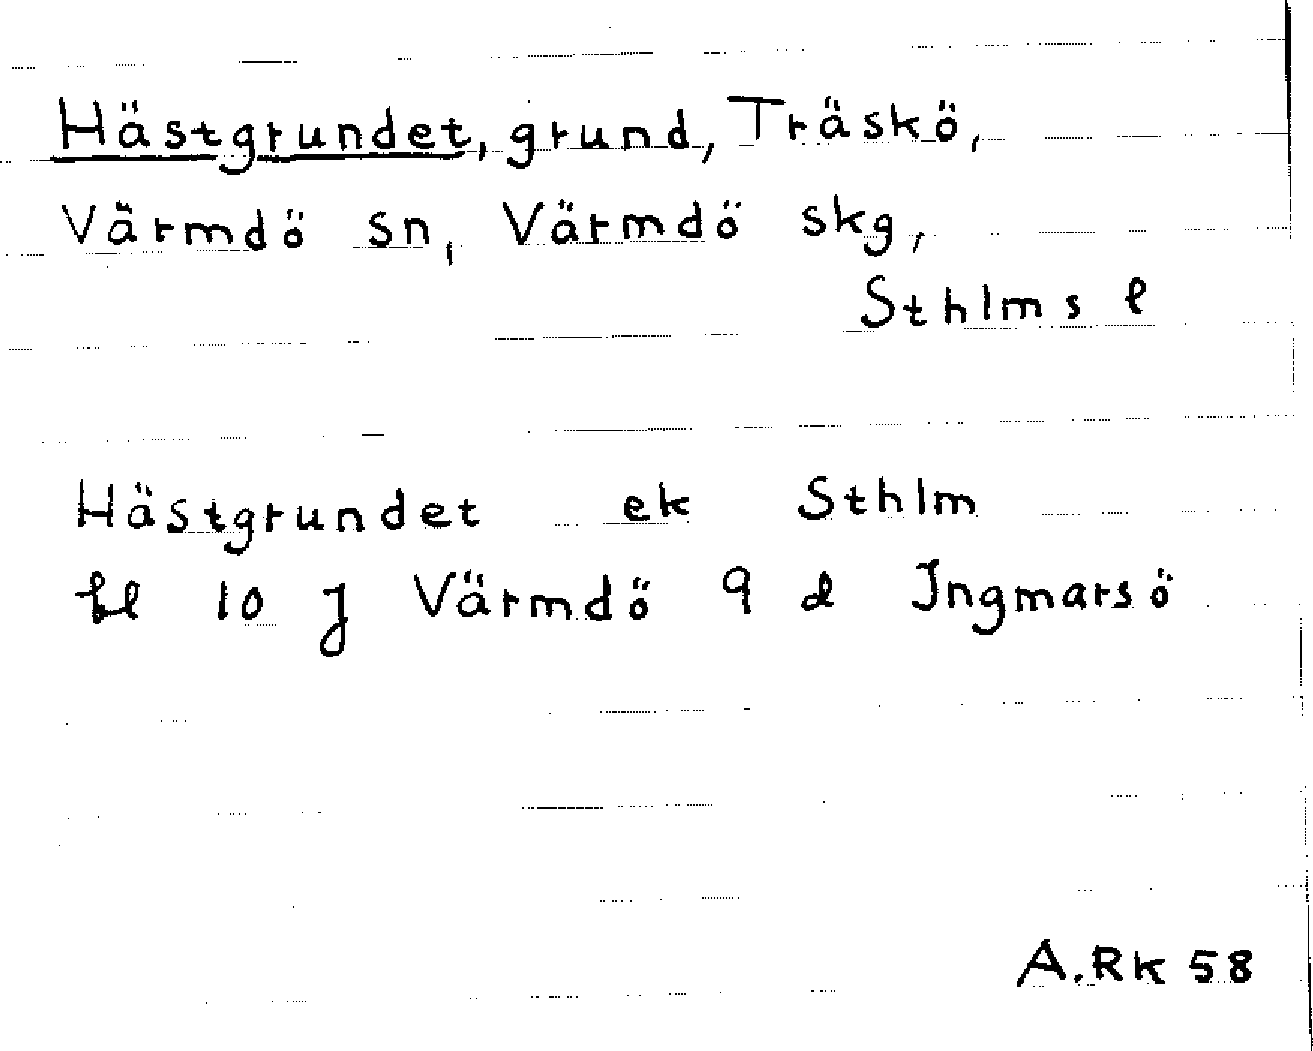 Hästgrundet, grund, Träskö,
Värmdö sn, Värmdö skg,
Sthlms l
Hästgrundet ek Sthlm
bl 10 J Värmdö 9 d Ingmarsö
A.Rk 58